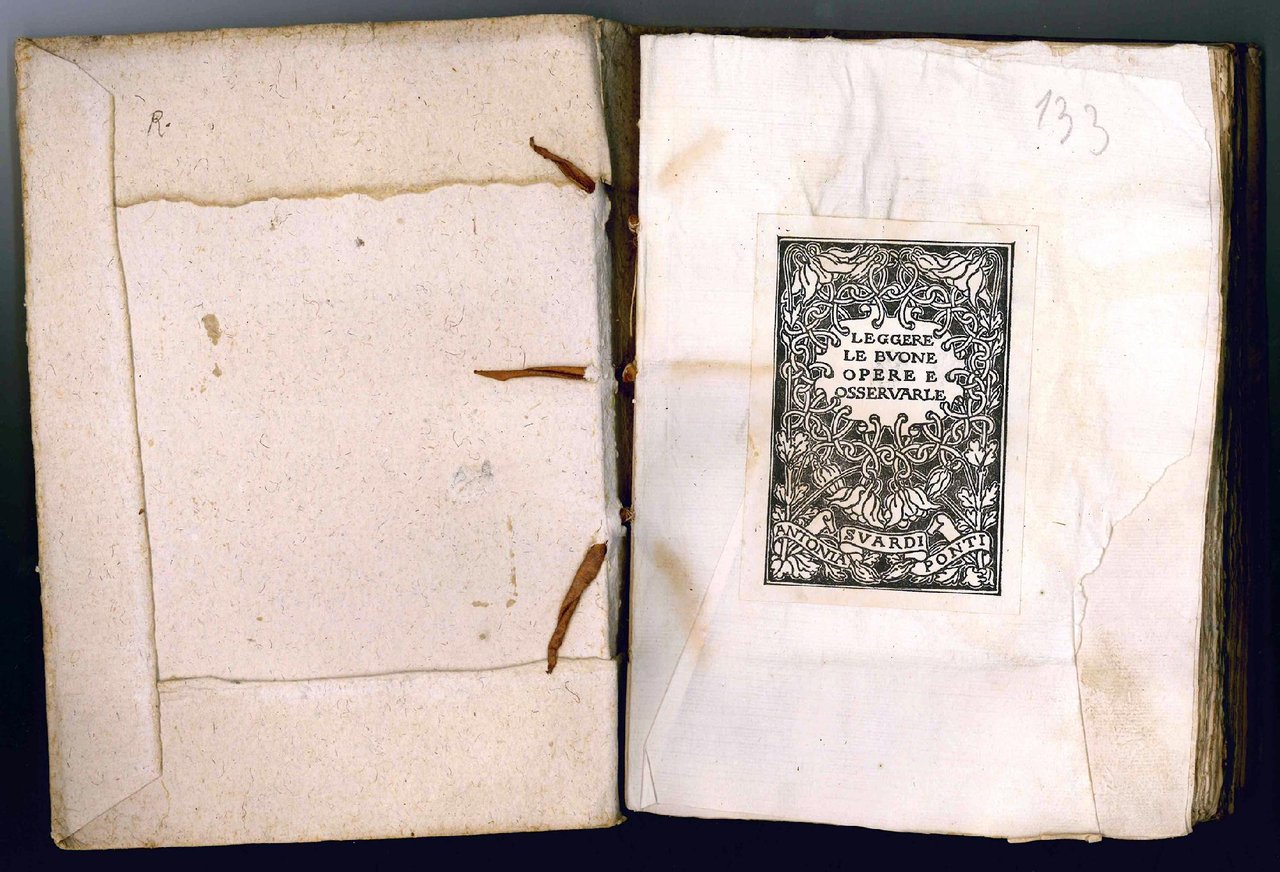 R.
133
LEGGERE
LE BVONE
OPERE E
OSSERVARLE
ANTONIA SVARDI PONTI